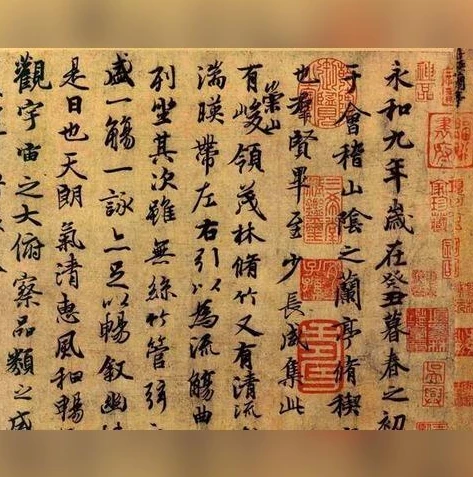 永和九年歲在癸丑暮春之初
于會稽山陰之蘭亭脩禊
也羣賢畢至少長咸集此
有崇山峻領茂林脩竹又有清流
湍暎帶左右引以為流觴曲
列坐其次雖無絲竹管弦
盛一觴一詠亦足以暢叙幽
是日也天朗氣清惠風和暢
觀宇宙之大俯察品類之盛